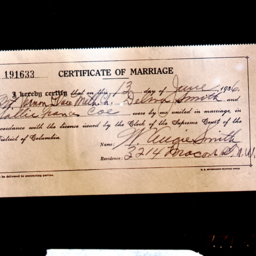 191633 CERTIFICATE OF MARRIAGE
I hereby certify that on this 13 day of June 1936
Smith and
Coe were by me united in marriage, in
accordance with the license issued by the Clerk of the Supreme Court of the
District of Columbia.
Name: W. Angie Smith
Residence: 3214 Macomb St. N.W.